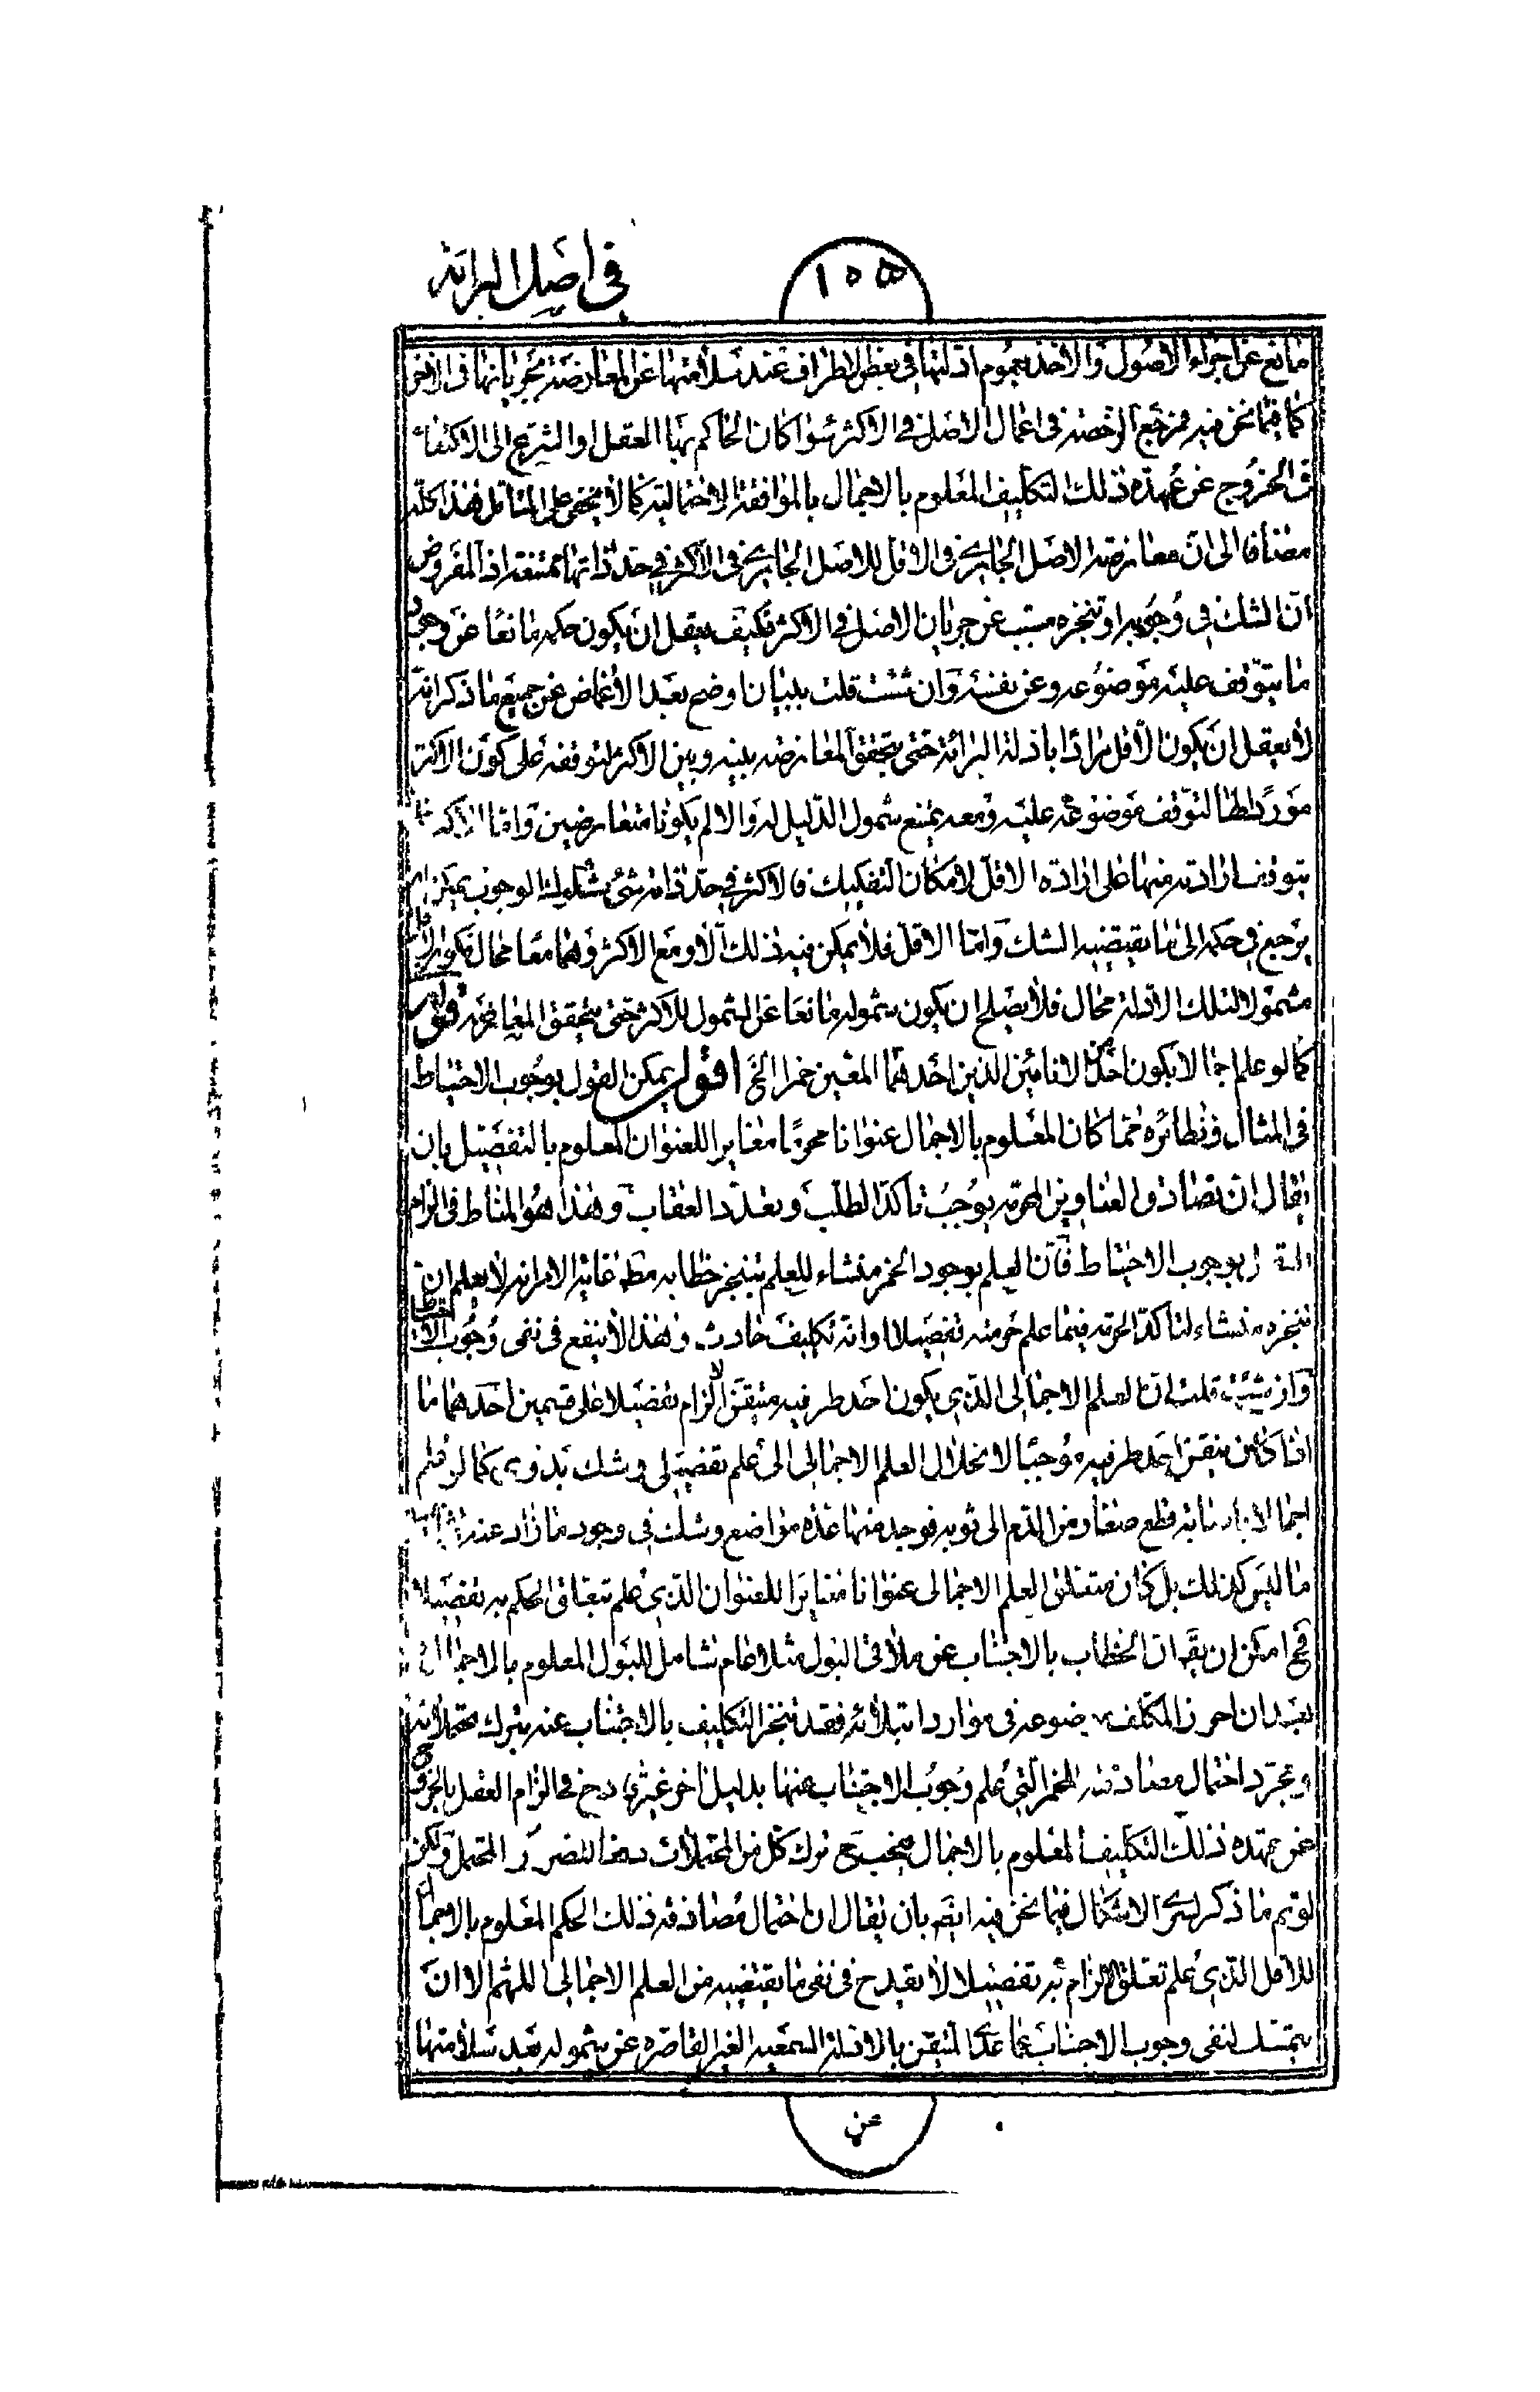 في اصل البرائة
١٠٥
مانع عن اجراء الاصول والاخذ بعموم ادلتها في بعض الاطراف عند سلامتها عن المعارضة بجريانها في الاخر
كما فيما نحن فيه فمرجع الرخصة في اعمال الاصل في الاكثر سواء كان الحاكم بها العقل او الشرع الى الاكتفاء
في الخروج عن عهدة ذلك التكليف المعلوم بالاجمال بالموافقة الاحتمالية كما لا يخفى على المتامل هذا كله
مضافا الى ان معارضة الاصل الجاري في الاقل للاصل الجاري في الاكثر في حد ذاتها ممتنعة اذ المفروض
ان الشك في وجوبه او تنجزه مسبب عن جريان الاصل في الاكثر فكيف يعقل ان يكون حكمه مانعا عن وجود
ما يتوقف عليه موضوعه وعن نفسه وان شئت قلت ببيان اوضح بعد الاغماض عن جميع ما ذكر انه
لا يعقل ان يكون الاقل مرادا بادلة البرائة حتى يتحقق المعارضة بينه وبين الاكثر لتوقفه على كون الاكثر
موردا لها لتوقف موضوعه عليه ومعه يمتنع شمول الدليل له والا لم يكونا متعارضين واما الاكثر فلا
يتوقف ارادته منها على ارادة الاقل لامكان التفكيك فالاكثر في حد ذاته شئ مشكوك الوجوب يمكن ان
يرجع في حكمه الى ما يقتضيه الشك واما الاقل فلا يمكن فيه ذلك الا ومع الاكثر وهما معا محال فكون الاقل
مشمولا لتلك الادلة محال فلا يصلح ان يكون شموله مانعا عن الشمول للاكثر حتى يتحقق المعارضة قوله
كما لو علم اجمالا بكون احد من الانائين الذين احدهما المعين خمر الخ اقول يمكن القول بوجوب الاحتياط
في المثال ونظائره مما كان المعلوم بالاجمال عنوانا محرما مغايرا للعنوان المعلوم بالتفصيل بان
يقال ان تصادق العناوين المحرمة يوجب تاكد الطلب وتعدد العقاب وهذا هو المناط في الزام
العقل بوجوب الاحتياط فان العلم بوجود الخمر منشاء للعلم بتنجز خطابه مط غاية الامر انه لا يعلم ان
تنجزه منشاء لتاكد الحرمة فيما علم حرمته تفصيلا او انه تكليف حادث وهذا لا ينفع في نفي وجوب الاحتياط
وان شئت قلت ان العلم الاجمالي الذي يكون احد طرفيه متيقن الالزام تفصيلا على قسمين احدهما ما
اذا كان تيقن احد طرفيه موجبا لانحلال العلم الاجمالي الى علم تفصيلي وشك بدوي كما لو علم
اجمالا باصابة قطع صغار من الدم الى ثوبه فوجد منها عدة مواضع وشك في وجود ما زاد عنه
ما ليس كذلك بل كان متعلق العلم الاجمالي عنوانا مغايرا للعنوان الذي علم تعلق الحكم به تفصيلا
فح امكن ان يقـ ان الخطاب بالاجتناب عن ملاقي البول مثلا عام شامل للبول المعلوم بالاجمال
بعد ان احرز المكلف موضوعه في موارد ابتلائه فقد تنجز التكليف بالاجتناب عنه بترك محتملاته
ومجرد احتمال مصادفته للخمر التي علم وجوب الاجتناب عنها بدليل اخر غير قادح في الزام العقل بالخروج
عن عهدة ذلك التكليف المعلوم بالاجمال فيجب ح ترك كل من المحتملات دفعا للضرر المحتمل ولكن
لو تم ما ذكر لسرى الاشكال فيما نحن فيه ايضـ بان يقال ان احتمال مصادفة ذلك الحكم المعلوم بالاجمال
للاقل الذي علم تعلق الالزام به تفصيلا لا يقدح في نفي ما يقتضيه من العلم الاجمالي اللهم الا ان
يتمسك لنفي وجوب الاجتناب عما عدى المتيقن بالادلة السمعية الغير القاصرة عن شموله بعد سلامتها
عن